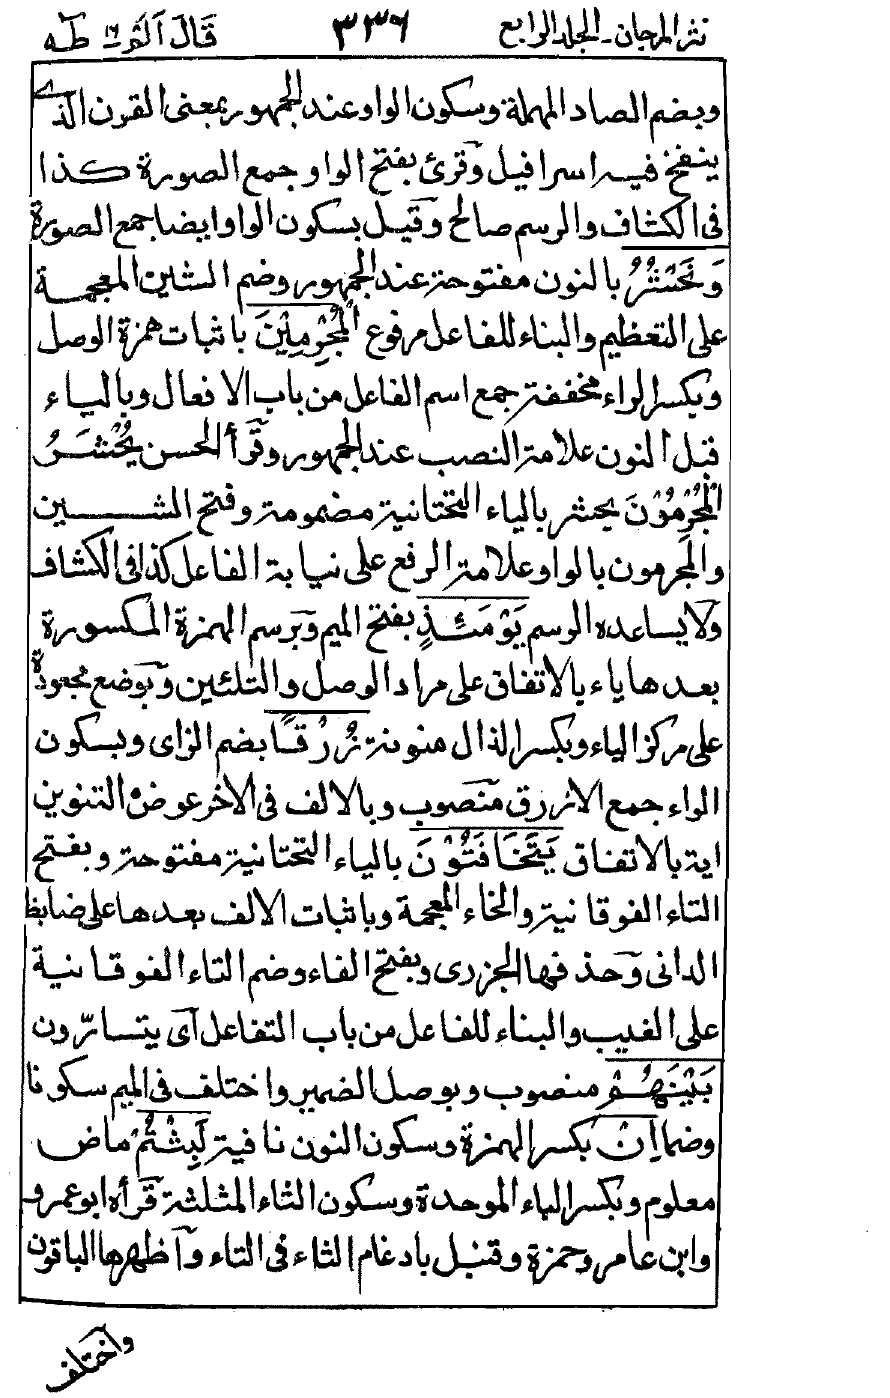 نثر المرجان ـ الجلد الرابع ٣٣٦ قَالَ اَلَمْ ١٦ طٰهٰ
وبضم الصاد المهملة وسكون الواو عند الجمهور بمعنى القرن الذى
ينفخ فيه اسرافيل وَقرئ بفتح الواو جمع الصورة كذا
فى الكشاف والرسم صالح وَقيل بسكون الواو ايضا جمع الصورة
وَنَحْشُرُ بالنون مفتوحة عند الجمهور وضم الشين المعجمة
على التعظيم والبناء للفاعل مرفوع الْمُجْرِمِيْنَ باثبات همزة الوصل
وبكسر الراء مخففة جمع اسم الفاعل من باب الافعال وبالياء
قبل النون علامة النصب عند الجمهور وقَرأ الحسن يُحْشَرُ
الْمُجْرِمُوْنَ يحشر بالياء التحتانية مضمومة وفتح الشين
والمجرمون بالواو علامة الرفع على نيابة الفاعل كذا فى الكشاف
وَلا يساعده الرسم يَوْمَئِذٍ بفتح الميم وَبرسم الهمزة المكسورة
بعدها ياء بالاتفاق على مراد الوصل والتلئين وَبوضع مجعودة
على مركز الياء وبكسر الذال منونة زُرْقًا بضم الزاى وبسكون
الراء جمع الازرق منَصوب وبالالف فى الاخر عوض التنوين
اية بالاتفاق يَتَخَافَتُوْنَ بالياء التحتانية مفتوحة وبفتح
التاء الفوقانية والخاء المعجمة وباثبات الالف بعدها على ضابطة
الدانى وَحذفها الجزرى وبفتح الفاء وضم التاء الفوقانية
على الغيب والبناء للفاعل من باب التفاعل اَى يتسارّون
بَيْنَهُمْ منصوب وبوصل الضمير واختلف فى الميم سكونا
وضما اِنْ بكسر الهمزة وسكون النون نافية لَبِثْتُمْ ماض
معلوم وبكسر الباء الموحدة وسكون الثاء المثلثة قَرأه ابو عمرو
وابن عامر وحمزة وقنبل بادغام الثاء فى التاء وَاَظهرها الباقون
وَاختلف